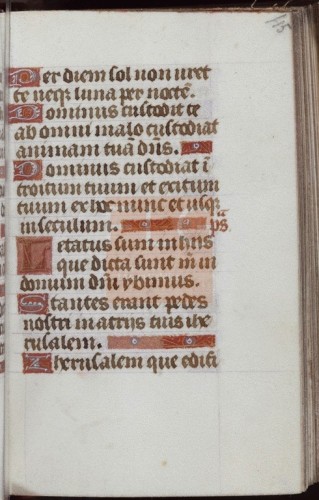 115
Per diem sol non uret
te neqꝫ luna per noctē.
Dominus custodit te
ab omni malo custodiat
animam tuā dn̄s.
Dominus custodiat ī
troitum tuum et exitum
tuum ex hoc nunc et usqꝫ
in seculum. ps̄
Letatus sum in hiis
que dicta sunt m̄ in
domum dn̄i ybimus.
Stantes erant pedes
nostri in atrijs tuis ihe
rusalem.
Iherusalem que edifi